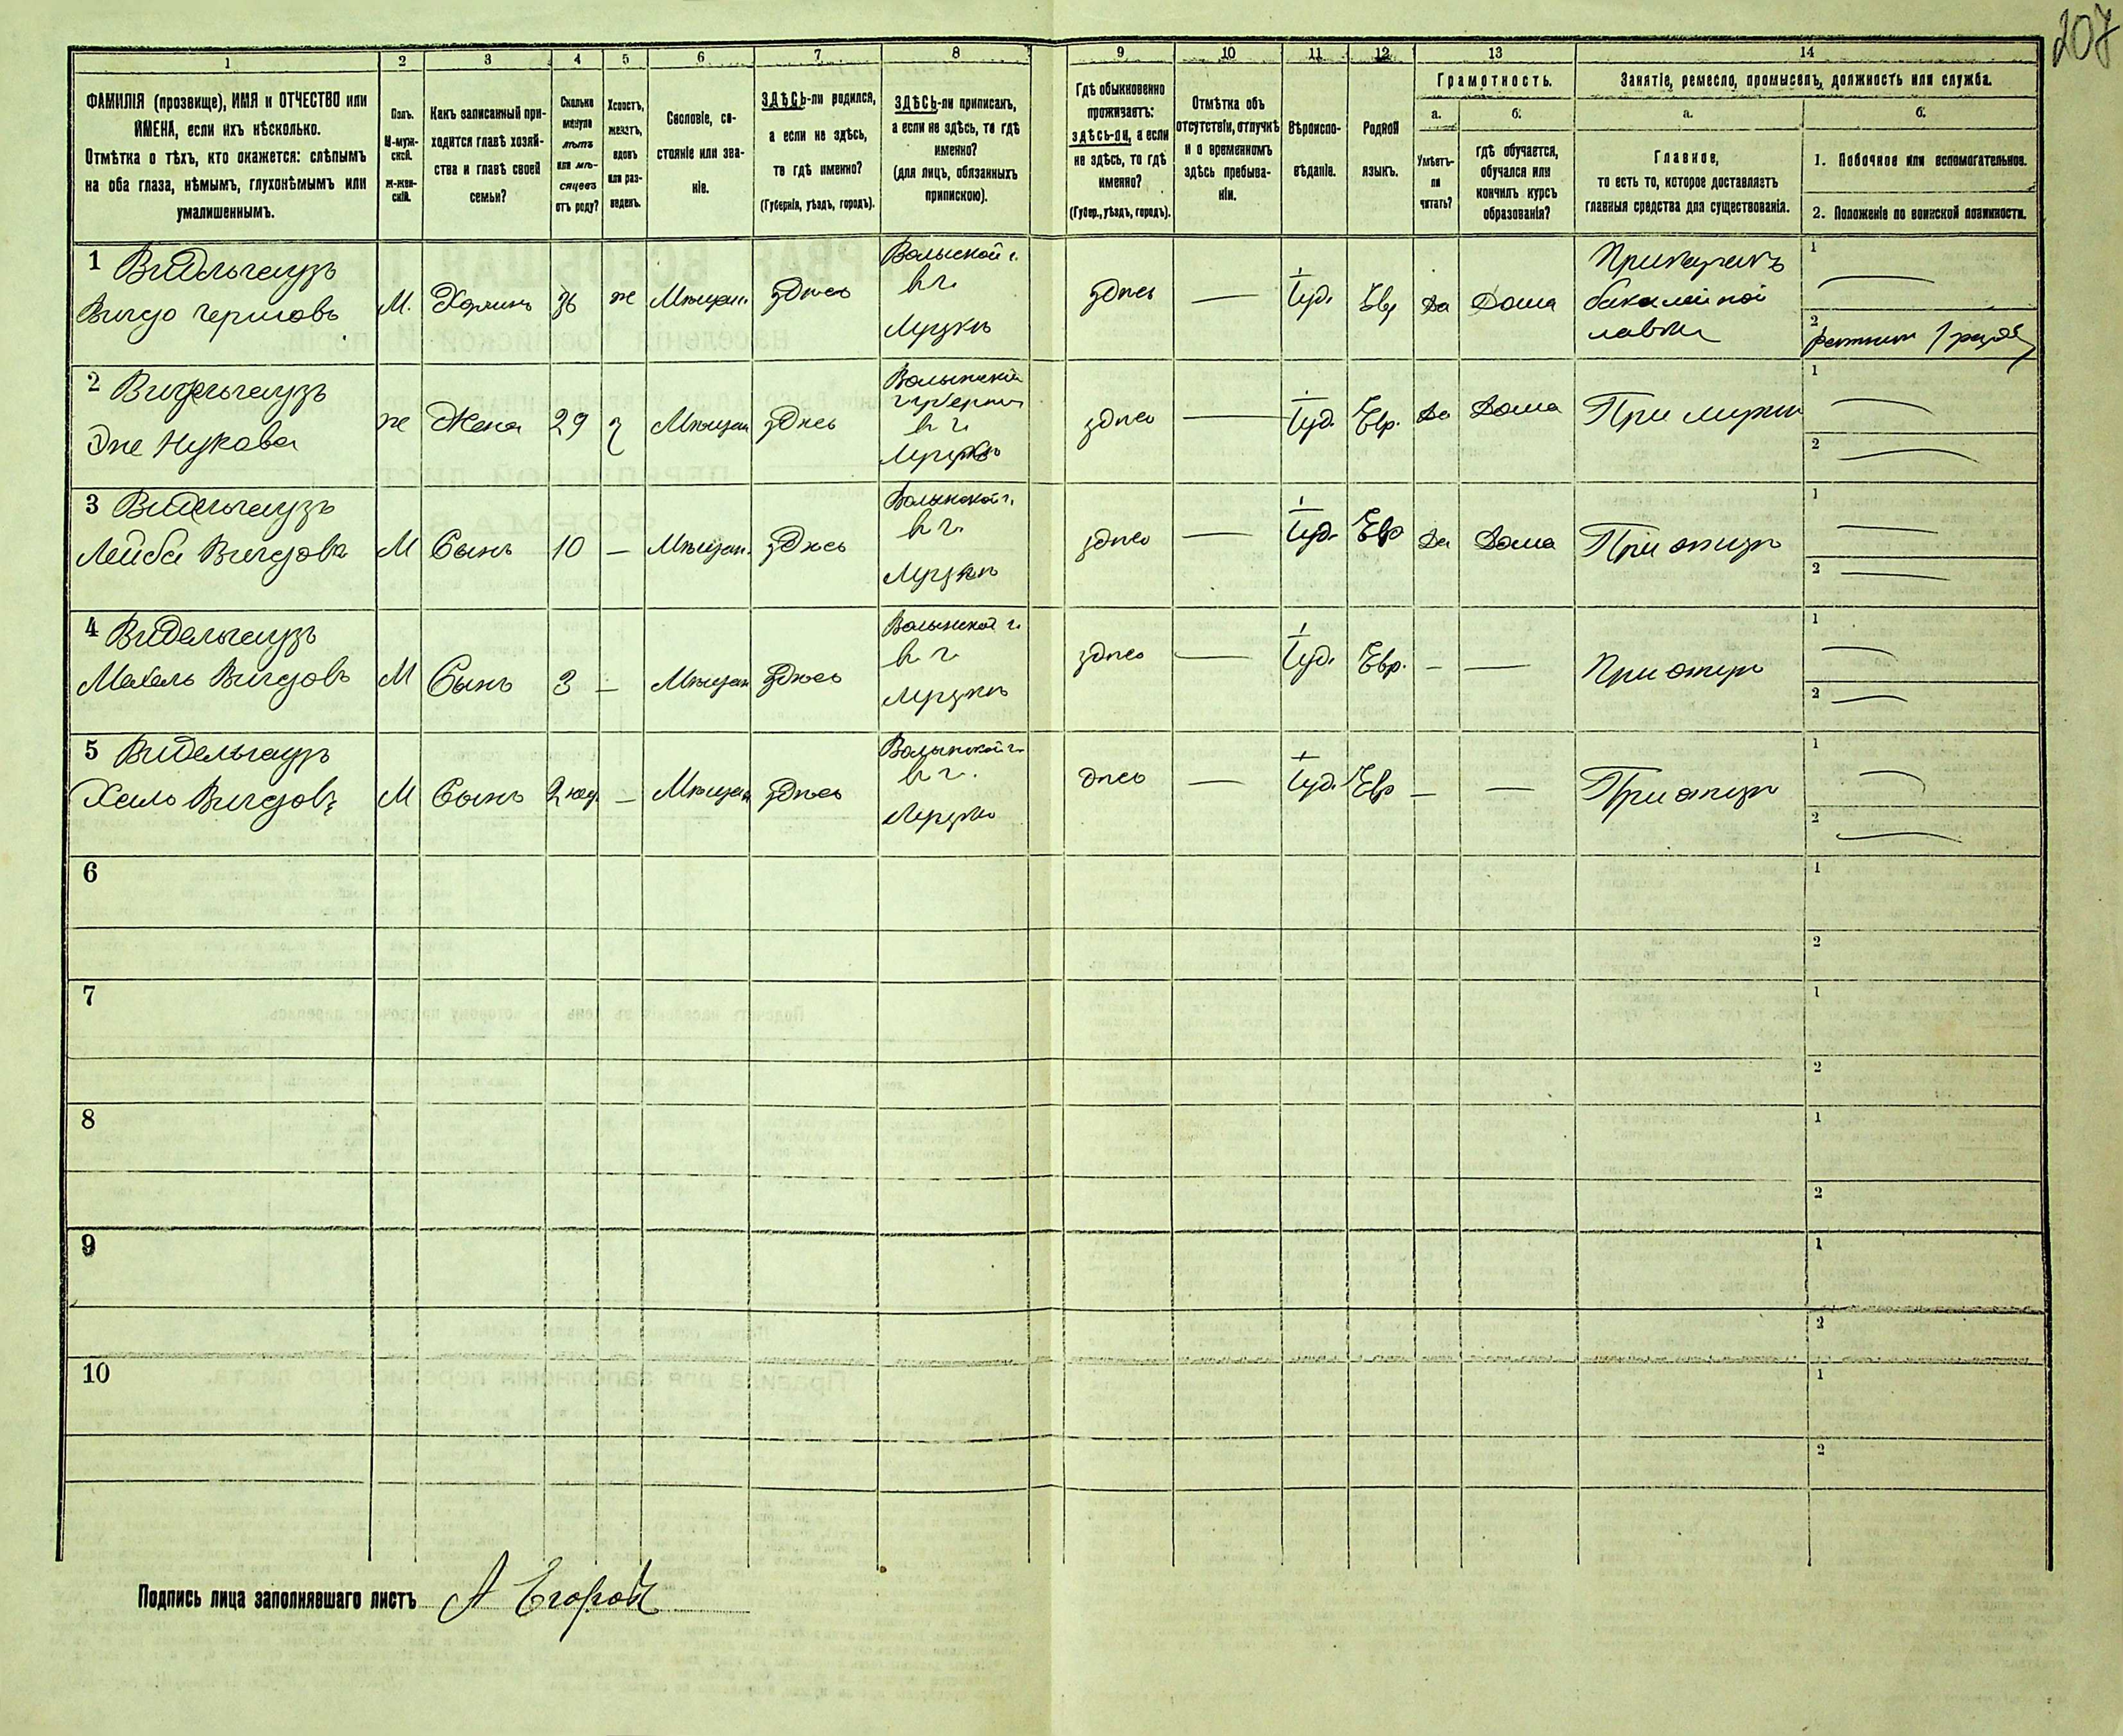 207
1 2 3 4 5 6 7 8 9 10 11 12 13 14
ФАМИЛІЯ (прозвище), ИМЯ и ОТЧЕСТВО или
ИМЕНА, если ихъ нѣсколько.
Отмѣтка о тѣхъ, кто окажется: слѣпымъ
на оба глаза, нѣмымъ, глухонѣмымъ или
умалишеннымъ.
Полъ.
М-муж-
ской.
Ж-жен-
скій.
Какъ записанный при-
ходится главѣ хозяй-
ства и главѣ своей
семьи?
Сколько
минуло
лѣтъ
или мѣ-
сяцевъ
отъ роду?
Холостъ,
женатъ,
вдовъ
или раз-
веденъ.
Сословіе, со-
стояніе или зва-
ніе.
ЗДѢСЬ-ли родился,
а если не здѣсь,
то гдѣ именно?
(Губернія, уѣздъ, городъ).
ЗДѢСЬ-ли приписанъ,
а если не здѣсь, то гдѣ
именно?
(для лицъ, обязанныхъ
припискою).
Гдѣ обыкновенно
проживаетъ:
здѣсь-ли, а если
не здѣсь, то гдѣ
именно?
(Губер., уѣздъ, городъ).
Отмѣтка объ
отсутствіи, отлучкѣ
и о временномъ
здѣсь пребыва-
ніи.
Вѣроиспо-
вѣданіе.
Родной
языкъ.
Грамотность.
а.
Умѣетъ-
ли
читать?
б.
гдѣ обучается,
обучался или
кончилъ курсъ
образованія?
Занятіе, ремесло, промыселъ, должность или служба.
а.
Главное,
то есть то, которое доставляетъ
главныя средства для существованія.
б.
1. Побочное или вспомогательное.
2. Положеніе по воинской повинности.
1 Видельгаузъ
Вигдо
М. Хозяинъ 36 ж Мѣщан. здѣсь
Волынской г.
в г.
Луцкѣ
здѣсь — Іуд. Евр Да Дома
Прикащикъ
бакалейной
лавки
1 —
2 Ратник 1 разр
2 Видельгаузъ
ж Жена 29 з Мѣщан здѣсь
Волынской
губерніи
в г.
Луцкѣ
здѣсь — Іуд. Евр. Да Дома При мужи
1 —
2 —
3 Видельгаузъ
Лейба Вигдова
М Сынъ 10 — Мѣщан. здѣсь
Волынской г.
в г.
Луцкѣ
здѣсь — Іуд. Евр Да Дома При отцѣ
1 —
2 —
4 Видельгаузъ
Вигдовъ
М Сынъ 3 — Мѣщан здѣсь
Волынской г.
в г.
Луцкѣ
здѣсь — Іуд. Евр. — — При отцѣ
1 —
2 —
5 Видельгаузъ
Вигдовъ
М Сынъ 2 — Мѣщан здѣсь
Волынской г.
в г.
Луцкѣ
днѣсь — Іуд. Евр — — При отцѣ
1 —
2 —
6
1
2
7
1
2
8
1
2
9
1
2
10
1
2
Подпись лица заполнявшаго листъ А